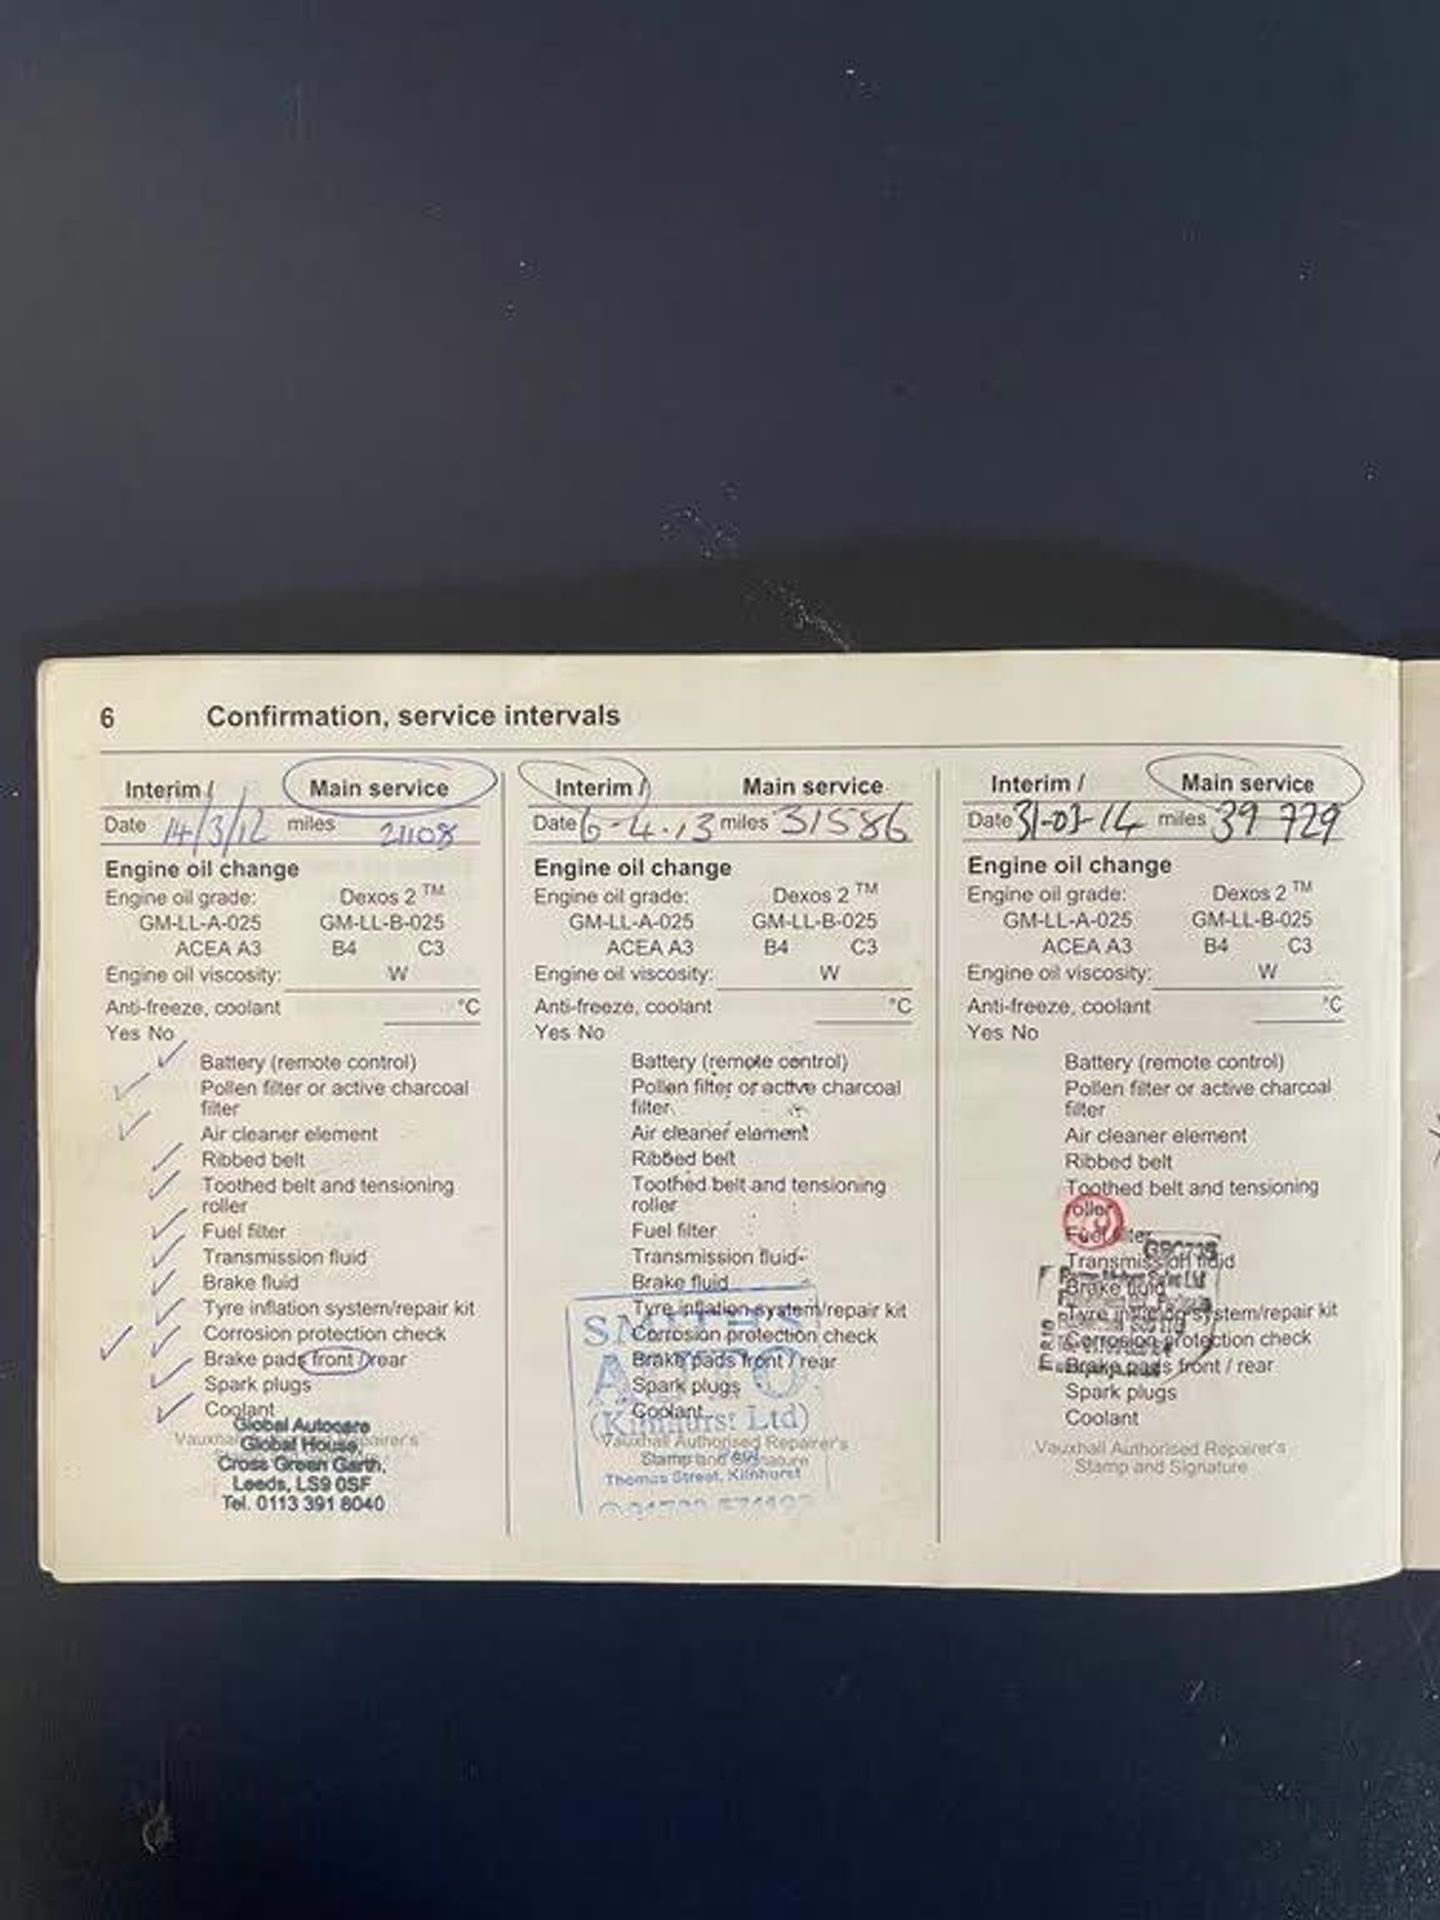 6 Confirmation, service intervals
Interim / Main service
Date 14/3/12 miles 21108
Engine oil change
Engine oil grade: Dexos 2 ™
GM-LL-A-025 GM-LL-B-025
ACEA A3 B4 C3
Engine oil viscosity: W
Anti-freeze, coolant °C
Yes No
Battery (remote control)
Pollen filter or active charcoal
filter
Air cleaner element
Ribbed belt
Toothed belt and tensioning
roller
Fuel filter
Transmission fluid
Brake fluid
Tyre inflation system/repair kit
Corrosion protection check
Brake pads front / rear
Spark plugs
Coolant
Global Autocare
Global House,
Cross Green Garth,
Leeds, LS9 0SF
Tel. 0113 391 8040
Interim / Main service
Date 6-4.13 miles 31586
Engine oil change
Engine oil grade: Dexos 2 ™
GM-LL-A-025 GM-LL-B-025
ACEA A3 B4 C3
Engine oil viscosity: W
Anti-freeze, coolant °C
Yes No
Battery (remote control)
Pollen filter or active charcoal
filter
Air cleaner element
Ribbed belt
Toothed belt and tensioning
roller
Fuel filter
Transmission fluid
Brake fluid
Tyre inflation system/repair kit
Corrosion protection check
Brake pads front / rear
Spark plugs
Coolant
Vauxhall Authorised Repairer's
Stamp and Signature
SMITHS
AUTO
(Kilnhurst Ltd)
Thomas Street, Kilnhurst
Interim / Main service
Date 31-03-14 miles 39 729
Engine oil change
Engine oil grade: Dexos 2 ™
GM-LL-A-025 GM-LL-B-025
ACEA A3 B4 C3
Engine oil viscosity: W
Anti-freeze, coolant °C
Yes No
Battery (remote control)
Pollen filter or active charcoal
filter
Air cleaner element
Ribbed belt
Toothed belt and tensioning
roller
Fuel filter
Transmission fluid
Brake fluid
Tyre inflation system/repair kit
Corrosion protection check
Brake pads front / rear
Spark plugs
Coolant
Vauxhall Authorised Repairer's
Stamp and Signature